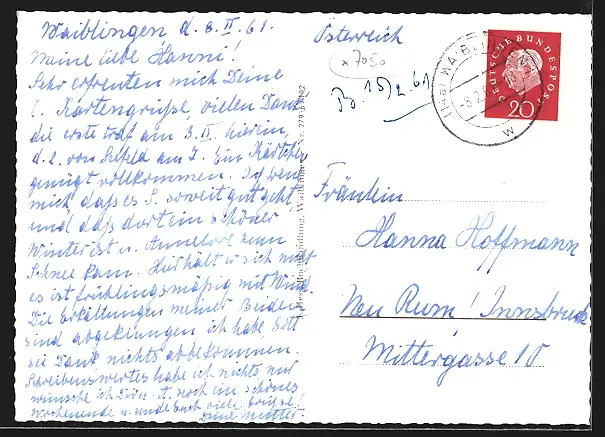 Waiblingen d. 8. II. 61.
Meine liebe Hanni!
Sehr erfreuten mich Deine
l. Kartengrüße, vielen Dank,
die erste traf am 3. II. hier ein,
d. 2. von Seefeld am 7. Ein Kärtchen
genügt vollkommen. Ich freu
mich, daß es S. soweit gut geht
und daß dort ein schöner
Winter ist u. Annelore zum
Schnee kam. Hier hält er sich nicht
es ist frühlingsmäßig mit Wind.
Die Erkältungen meiner Beiden
sind abgeklungen ich habe, Gott
sei Dank nichts abbekommen.
Schreibenswertes habe ich nichts nur
wünsche ich Dir u. noch ein schönes
Wochenende u. viele Grüße!
Deine Mutter.
Österreich
* 7050
B. 15/2. 61
WAIBLINGEN
-8.2.
W
DEUTSCHE BUNDESPOST
20
Fräulein
Hanna Hoffmann
Neu Rum / Innsbruck
Mittergasse 10